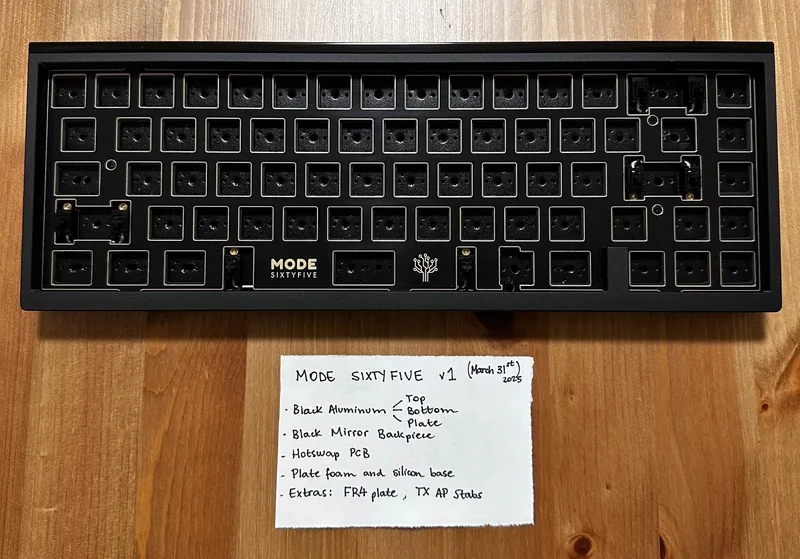 MODE
SIXTYFIVE
MODE SIXTYFIVE v1 (March 31st)
2025
- Black Aluminum Top
Bottom
Plate
- Black Mirror Backpiece
- Hotswap PCB
- Plate foam and silicon base
- Extras: FR4 plate, TX AP Stabs